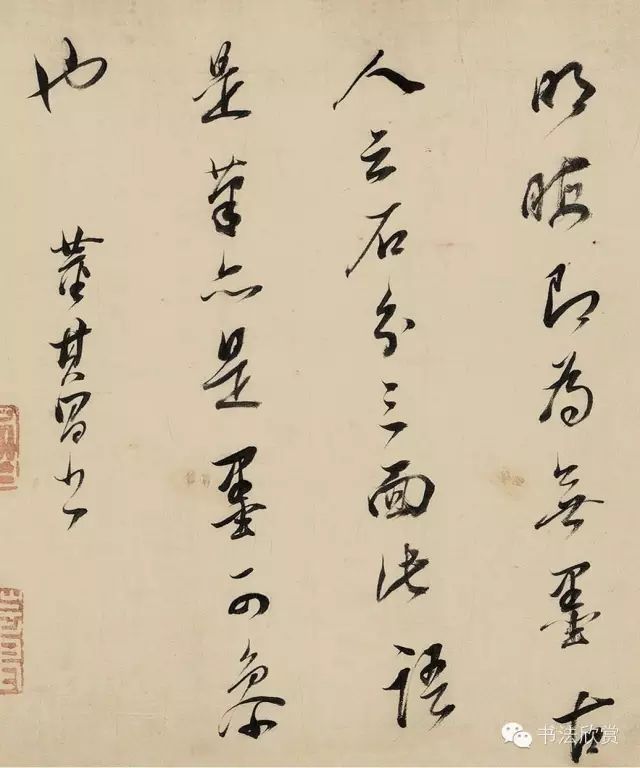 明晦即為無墨古
人云石分三面此語
是筆亦是墨可參
也
董其昌書
书法欣赏